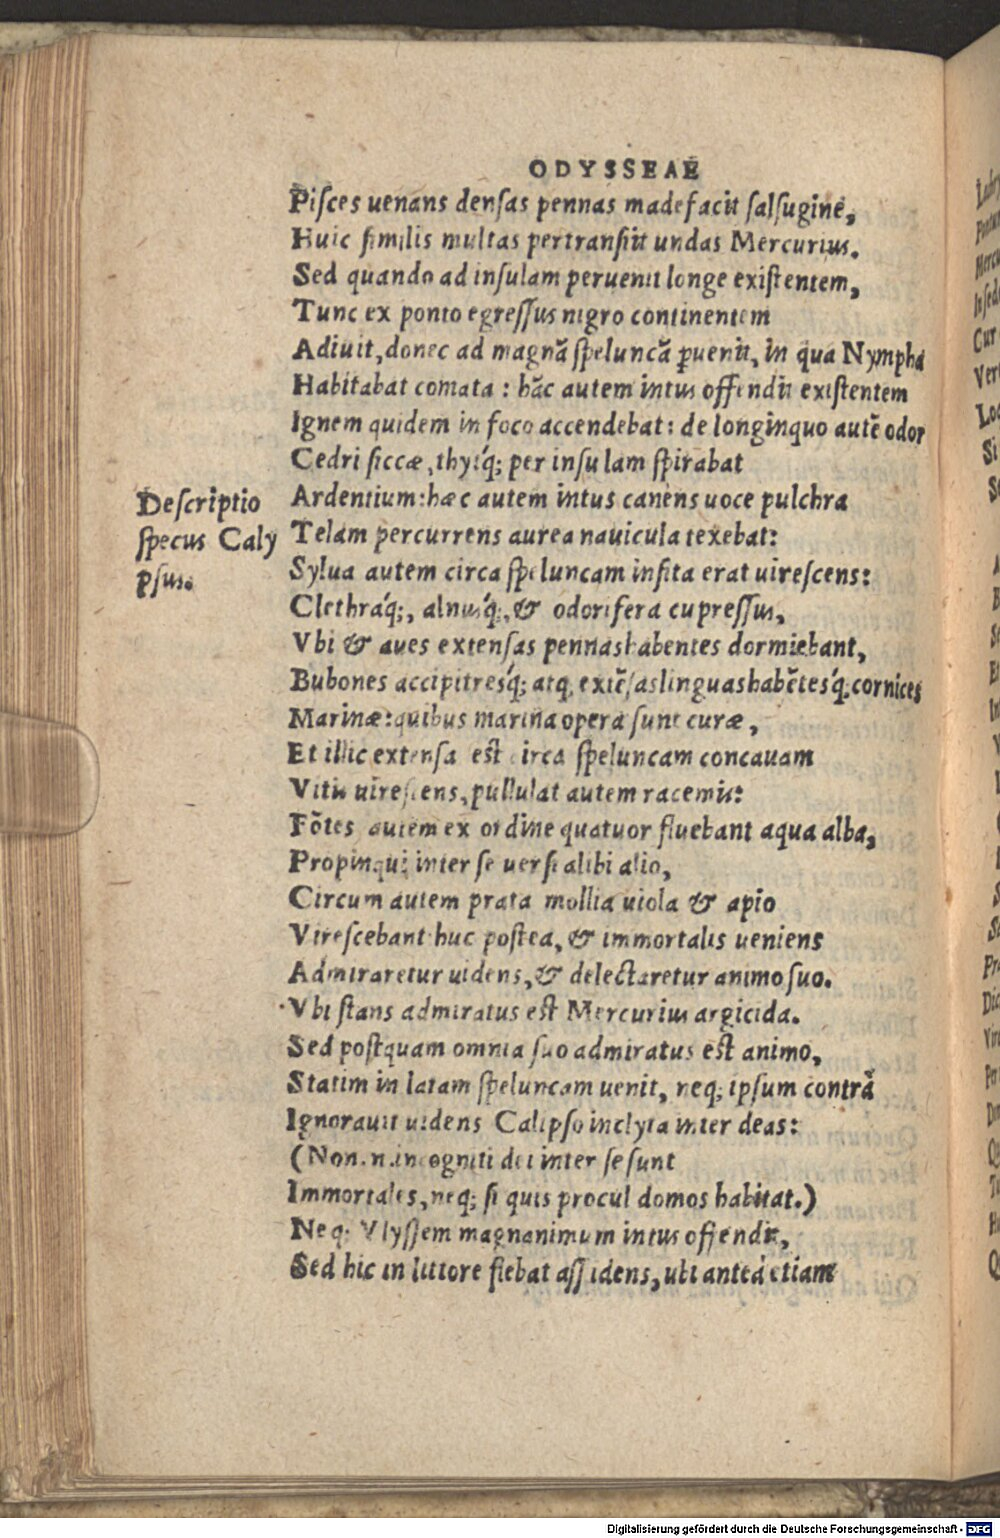 ODYSSEAE
Piſces uenans denſas pennas madefacit ſalſugine,
Huic ſimilis multas pertranſiit undas Mercurius.
Sed quando ad inſulam peruenit longe exiſtentem,
Tunc ex ponto egreſſus nigro continentem
Adiuit, donec ad magnā ſpeluncā ꝑuenit, in qua Nympha
Habitabat comata : hāc autem intus offendit exiſtentem
Ignem quidem in foco accendebat: de longinquo autē odor
Cedri ſiccæ, thyiq́; per inſulam ſpirabat
Ardentium: hæc autem intus canens uoce pulchra
Descriptio
ſpecus Caly
pſus.
Telam percurrens aurea nauicula texebat:
Sylua autem circa ſpeluncam inſita erat uireſcens:
Clethraq́;, alnusq́;, & odorifera cupreſſus,
Vbi & aues extenſas pennas habentes dormiebant,
Bubones accipitresq́; atq; extēſas linguas habētesq́; cornices
Marinæ: quibus marina opera ſunt curæ,
Et illic extenſa eſt circa ſpeluncam concauam
Vitis uireſcens, pullulat autem racemis:
Fōtes autem ex ordine quatuor fluebant aqua alba,
Propinqui inter ſe uerſi alibi alio,
Circum autem prata mollia uiola & apio
Vireſcebant huc poſtea, & immortalis ueniens
Admiraretur uidens, & delectaretur animo ſuo.
Vbi ſtans admiratus eſt Mercurius argicida.
Sed poſtquam omnia ſuo admiratus eſt animo,
Statim in latam ſpeluncam uenit, neq; ipſum contrà
Ignorauit uidens Calipſo inclyta inter deas:
(Non.n.incogniti dei inter ſe ſunt
Immortales, neq; ſi quis procul domos habitat.)
Neq; Vlyſſem magnanimum intus offendit,
Sed hic in littore flebat aſſidens, ubi anteà etiam
Digitalisierung gefördert durch die Deutsche Forschungsgemeinschaft - DFG